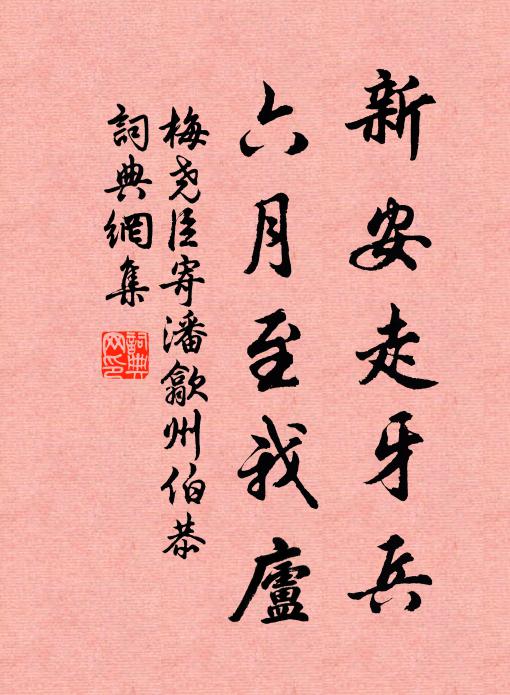 新安走牙兵
六月至我廬
梅堯臣寄潘歙州伯恭
詞典網集
詞典
网印